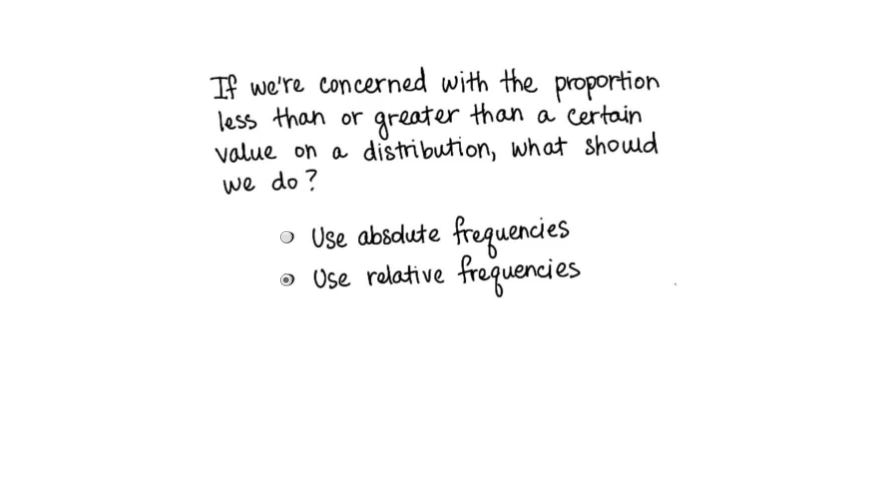 If we're concerned with the proportion
less than or greater than a certain
value on a distribution, what should
we do?
Use absolute frequencies
Use relative frequencies